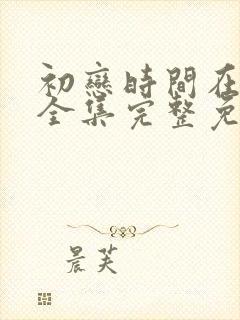 初戀時間在
全集完整免
晨芙